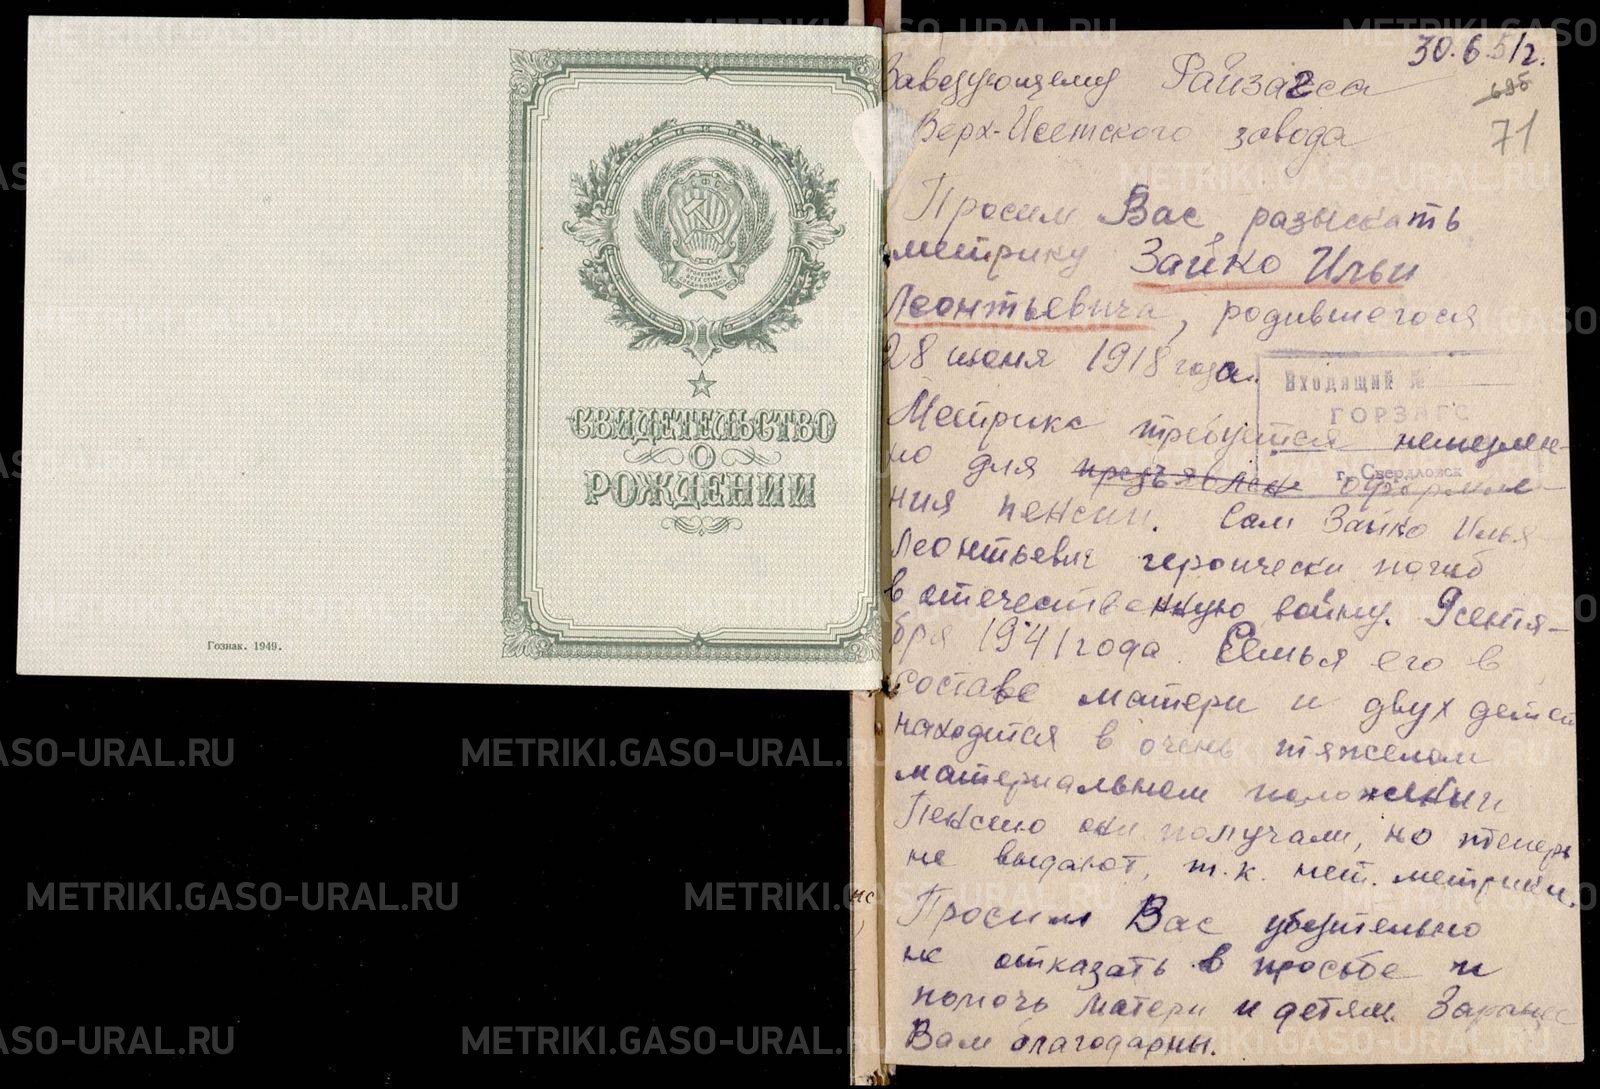 СВИДЕТЕЛЬСТВО
О
РОЖДЕНИИ
Гознак. 1949.
30.6.51г.
71
Заведующему Райзагса
Верх-Исетского завода
Просим Вас, разыскать
метрику Зайко Ильи
Леонтьевича, родившегося
28 июня 1918 года.
Входящий №
ГОРЗАГС
г. Свердловск
Метрика требуется немедлен-
но для предъявлен оформле-
ния пенсии. Сам Зайко Илья
Леонтьевич героически погиб
в отечественную войну. 9 сентя-
бря 1941 года. Семья его в
составе матери и двух детей
находится в очень тяжелом
материальном положении
Пенсию они получали, но теперь
не выдают, т.к. нет. метрики.
Просим Вас убедительно
не отказать в просьбе и
помочь матери и детям. Заранее
Вам благодарны.
METRIKI.GASO-URAL.RU